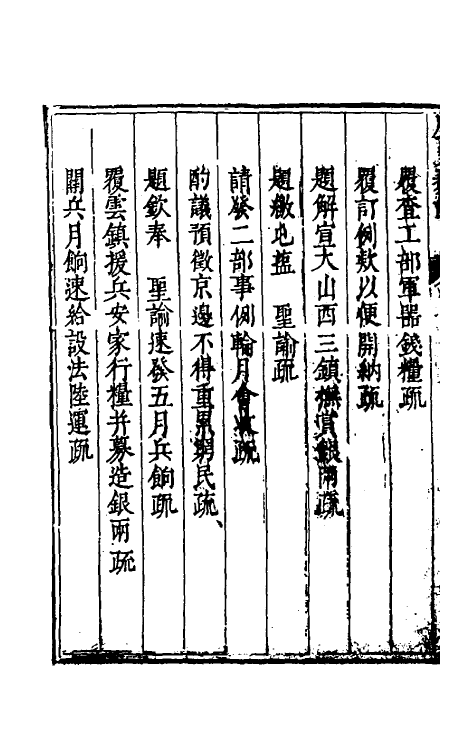 覆查工部軍器錢糧疏
覆訂例欵以便開納疏
題解宣大山西三鎮撫賞銀兩疏
題繳屯鹽　聖諭疏
請發二部事例輪月會收疏
酌議預徵京邊不得重累窮民疏
題欽奉　聖諭速發五月兵餉疏
覆雲鎮援兵安家行糧并募造銀兩疏
關兵月餉速給設法陸運疏